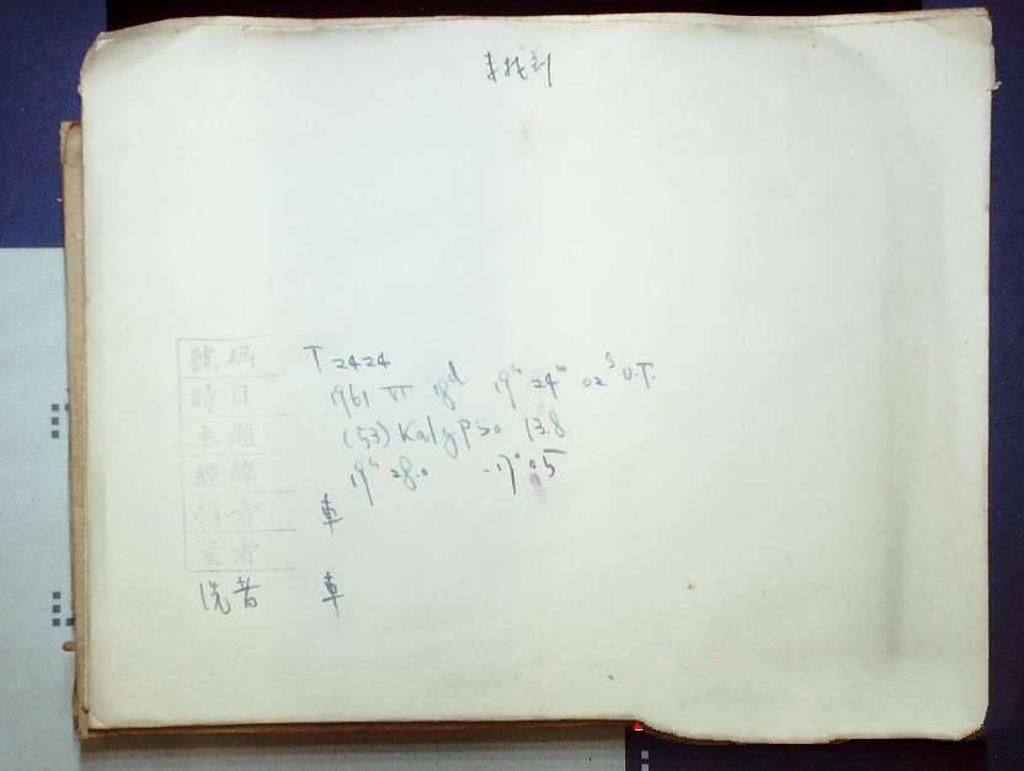 未找到
號碼 T 2424
時日 1961 VI 18d 19h 24m 02s U.T.
主題 (53) Kalypso 13.8
19h 28.0 -17°05
車
量者
洗者 車